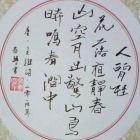 人閒桂
花落夜靜春
山空月出驚山鳥
時鳴春澗中